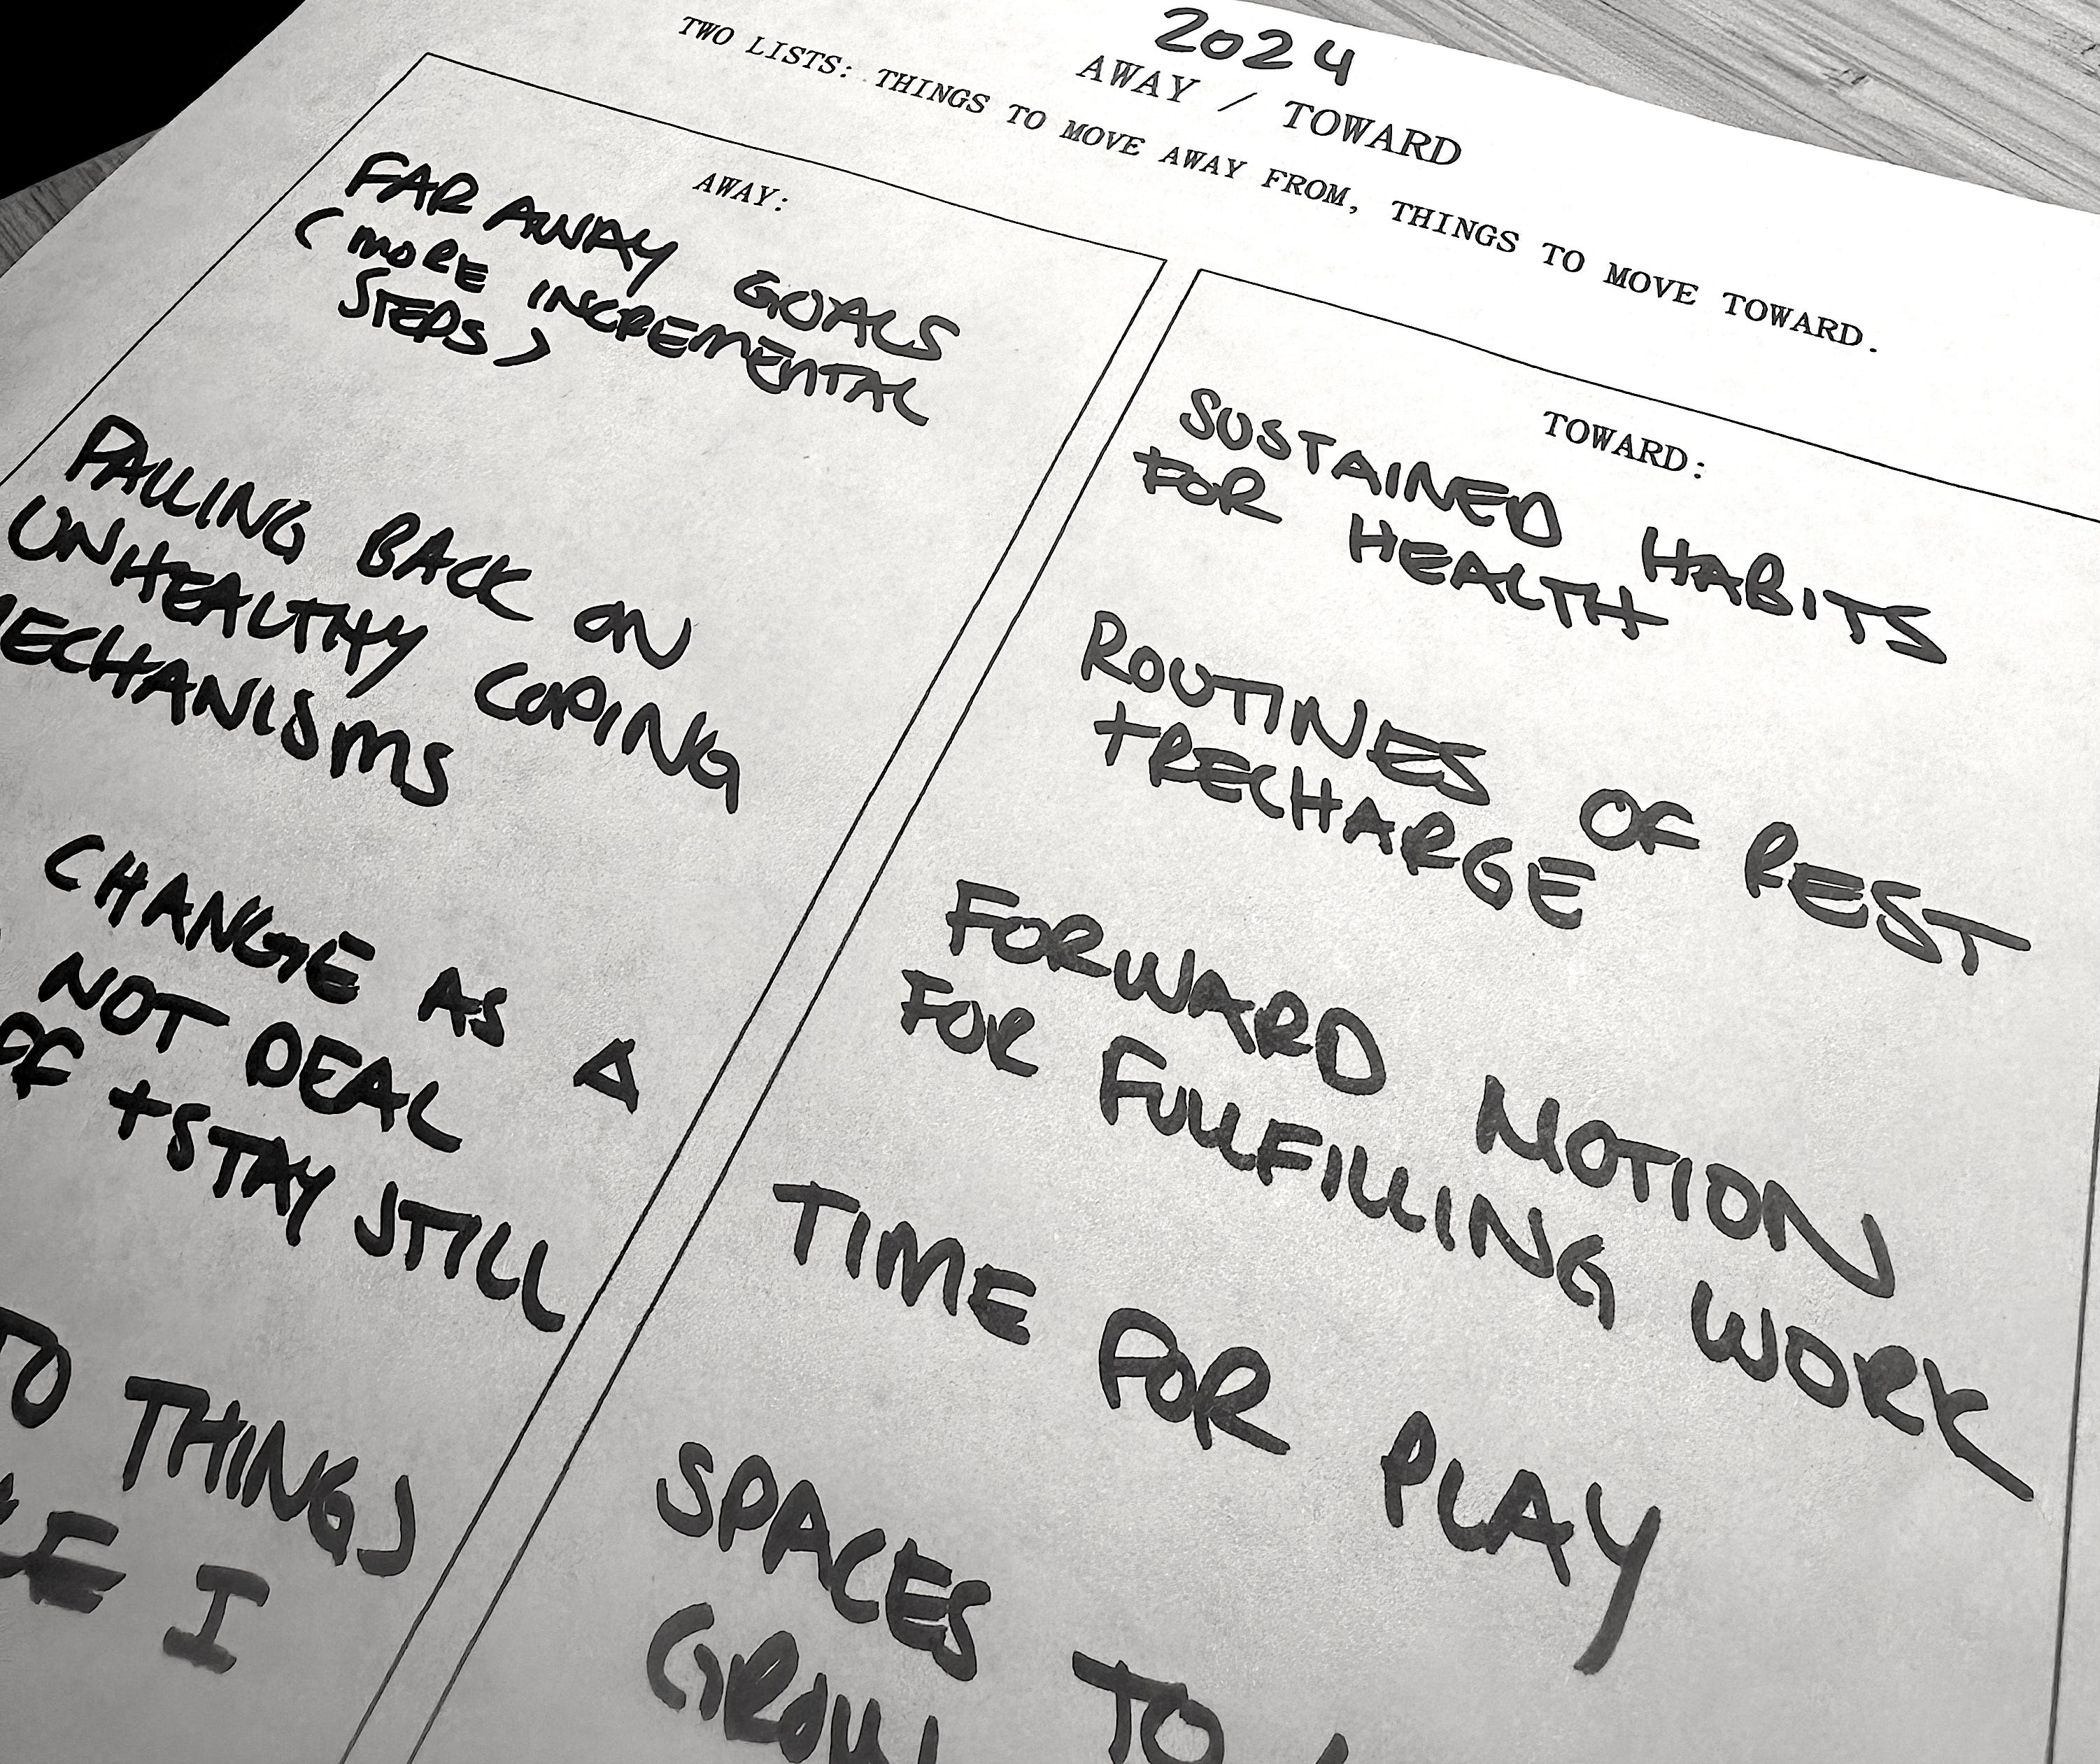 2024
AWAY / TOWARD
TWO LISTS: THINGS TO MOVE AWAY FROM, THINGS TO MOVE TOWARD.
AWAY:
FAR AWAY GOALS
(MORE INCREMENTAL
STEPS)
FALLING BACK ON
UNHEALTHY COPING
MECHANISMS
CHANGE AS A
NOT DEAL
+ STAY STILL
TO THINGS
I
TOWARD:
SUSTAINED HABITS
FOR HEALTH
ROUTINES OF REST
+ RECHARGE
FORWARD MOTION
FOR FULLFILLING WORK
TIME FOR PLAY
SPACES TO
GROW